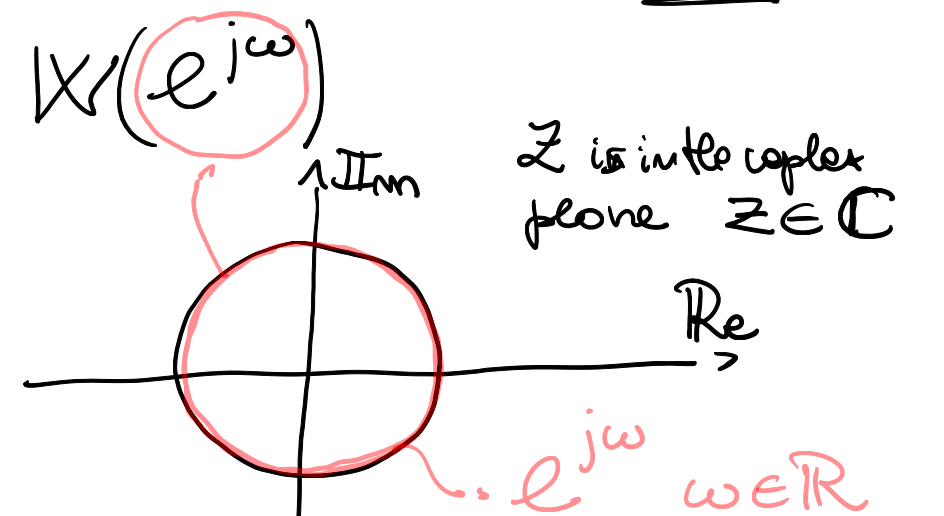 W(e^jω)
Im
Z is in the coplex
plane Z∈ℂ
Re
e^jω ω∈ℝ